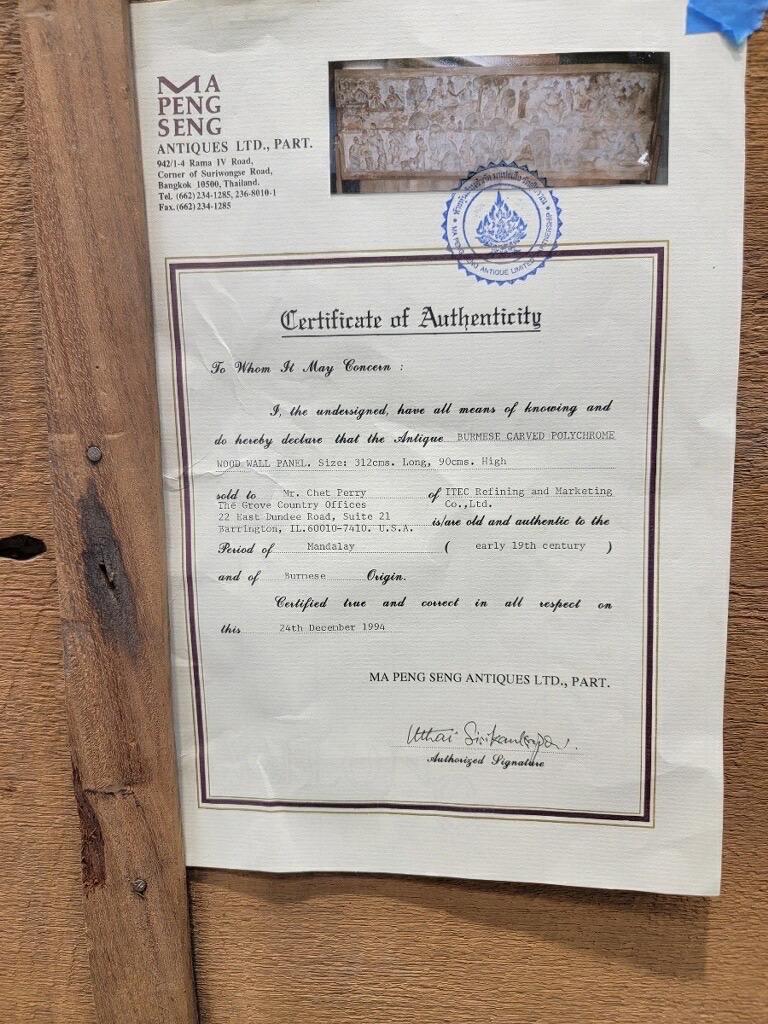 MA
PENG
SENG
ANTIQUES LTD., PART.
942/1-4 Rama IV Road,
Corner of Suriwongse Road,
Bangkok 10500, Thailand.
Tel. (662) 234-1285, 236-8010-1
Fax. (662) 234-1285
MA PENG SENG ANTIQUE LIMITED PARTNERSHIP
Certificate of Authenticity
To Whom It May Concern :
I, the undersigned, have all means of knowing and
do hereby declare that the Antique BURMESE CARVED POLYCHROME
WOOD WALL PANEL. Size: 312cms. Long, 90cms. High
sold to Mr. Chet Perry of ITEC Refining and Marketing
The Grove Country Offices Co.,Ltd.
22 East Dundee Road, Suite 21 is/are old and authentic to the
Barrington, IL.60010-7410. U.S.A.
Period of Mandalay ( early 19th century )
and of Burmese Origin.
Certified true and correct in all respect on
this 24th December 1994
MA PENG SENG ANTIQUES LTD., PART.
Uthai
Authorized Signature